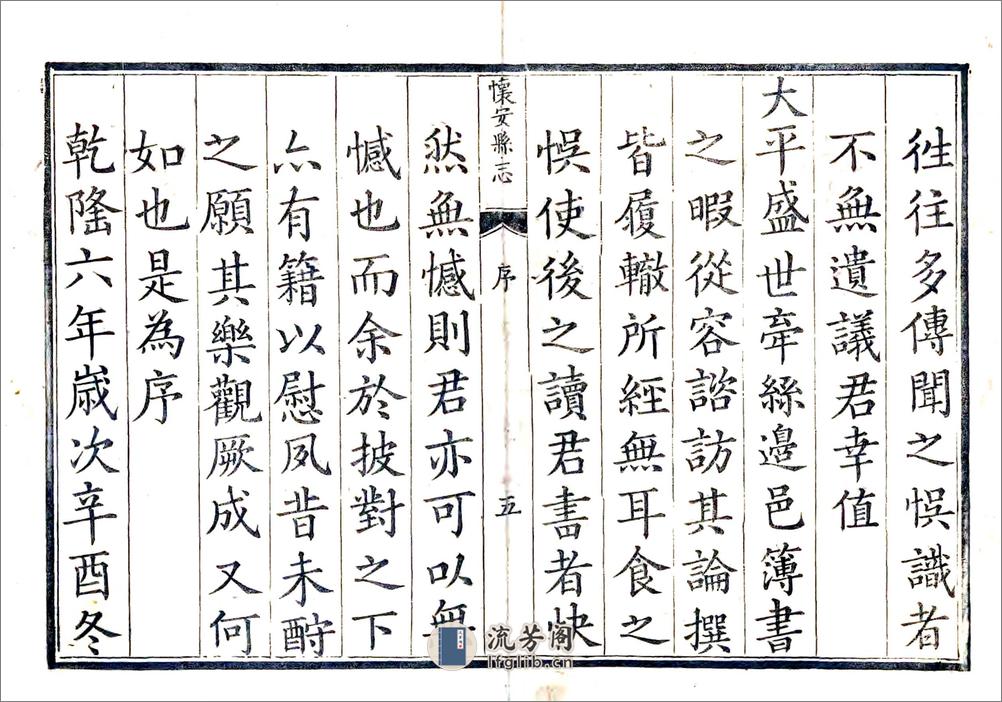 徃往多傳聞之悮識者
不無遺議君幸值
大平盛世牽絲邊邑簿書
之暇從容諮訪其論撰
皆履轍所經無耳食之
悮使後之讀君書者快
懷安縣志 序 五
然無憾則君亦可以無
憾也而余於披對之下
亦有籍以慰夙昔未酧
之願其樂觀厥成又何
如也是為序
乾隆六年歲次辛酉冬
流芳阁
lfglib.cn